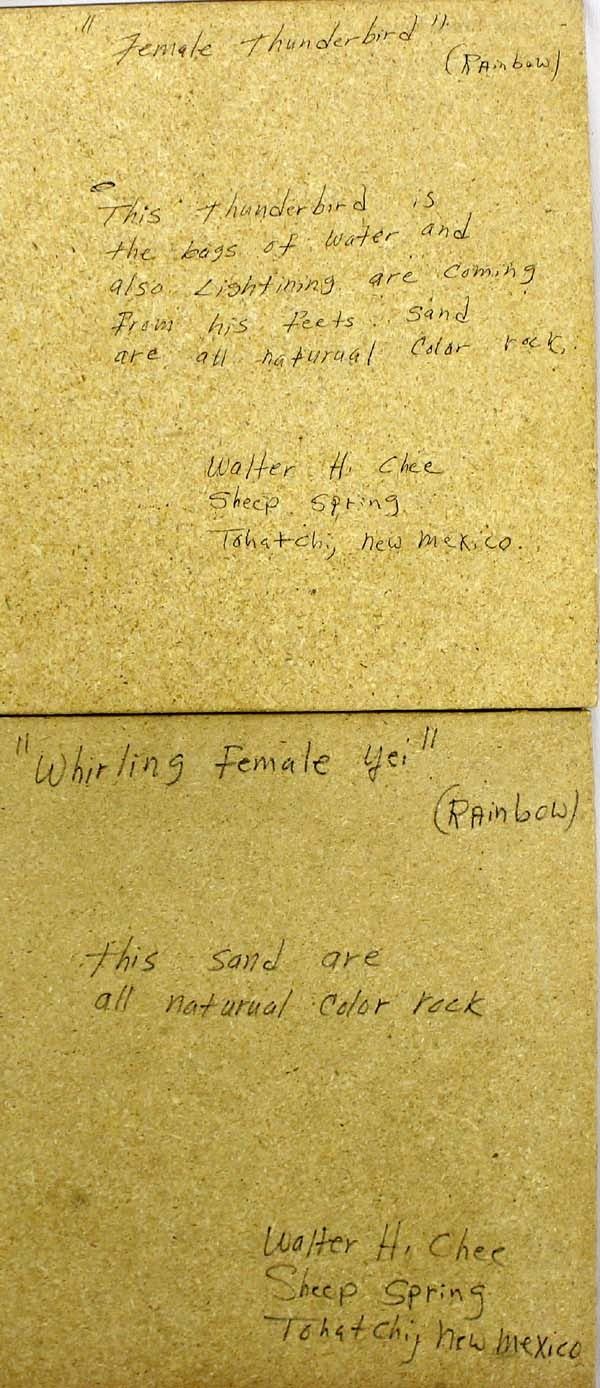 "Female thunderbird"
(RAinbow)
This thunderbird is
the bags of water and
also Lightining are coming
From his feets. sand
are all naturual color rock.
Walter H. Chee
Sheep Spring
Tohatchi, new mexico.
"Whirling Female Yei"
(RAinbow)
this sand are
all naturual color rock
Walter H. Chee
Sheep Spring
Tohatchi, new mexico